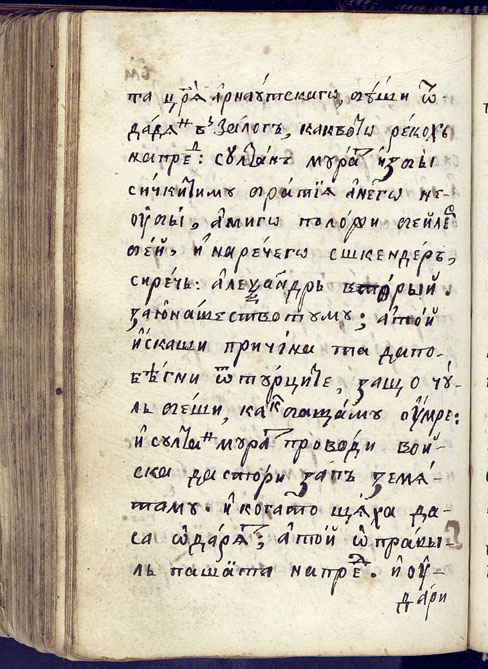 та цр҃ѧ арнаꙋтскагѡ, бѣши ѿ
даде́н въ зало́гъ, каквото рекохъ
напре́д: сꙋлта́нъ мꙋра́т изби
си́чкитиму братїѧ а негѡ не-
ꙋби, а́мигѡ положи бейле́р
бей, и́ нарече́гѡ сшкендерь,
сиречь: а́леѯандръ вторый.
за ю́наш̾ествотуму; а́ той
и́скаши причи́на та да по-
бѣгни ѿ тꙋрците, защо чꙋ-
ль бе́ши, как баща́му ᲂу҆мре:
и́ сꙋлта́н мꙋра́т проводи вой-
ска да стори запъ земѧ-
таму. и́ кога́то щѧха да-
са ѡ҆да́рѧт; а́ той ѡ҆пра́вы-
ль паша́та напре́д. и́ ᲂу҆-
дари